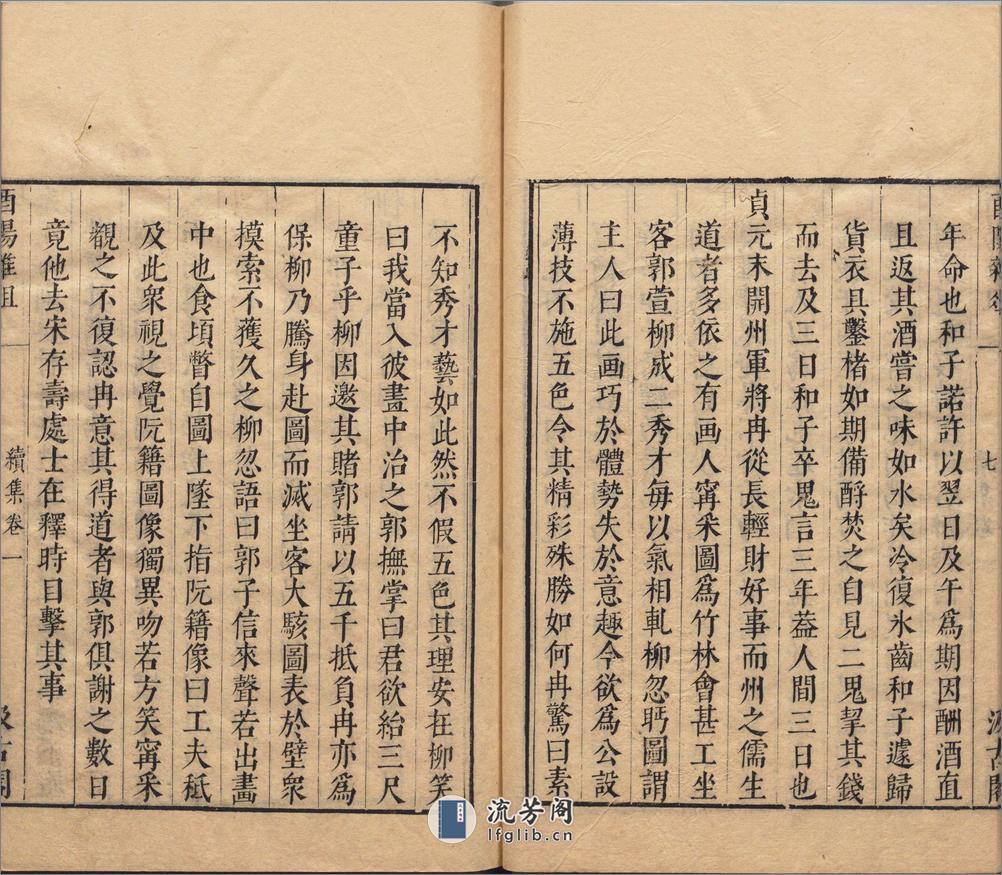 酉陽雜俎
七
汲古閣
年命也和子諾許以翌日及午爲期因酬酒直
且返其酒嘗之味如水矣冷復氷齒和子遽歸
貨衣具鑿楮如期備酹焚之自見二鬼挈其錢
而去及三日和子卒鬼言三年葢人間三日也
貞元末開州軍將冉從長輕財好事而州之儒生
道者多依之有画人甯采圖爲竹林會甚工坐
客郭萱柳成二秀才每以氣相軋柳忽眄圖謂
主人曰此画巧於體勢失於意趣今欲爲公設
薄技不施五色令其精彩殊勝如何冉驚曰素
不知秀才藝如此然不假五色其理安在柳笑
曰我當入彼畫中治之郭撫掌曰君欲紿三尺
童子乎柳因邀其賭郭請以五千抵負冉亦爲
保柳乃騰身赴圖而滅坐客大駭圖表於壁衆
摸索不獲久之柳忽語曰郭子信來聲若出畫
中也食頃瞥自圖上墜下指阮籍像曰工夫秪
及此衆視之覺阮籍圖像獨異吻若方笑甯采
觀之不復認冉意其得道者與郭俱謝之數日
竟他去宋存壽處士在釋時目擊其事
酉陽雜俎
續集卷一
汲古閣
流芳阁
lfglib.cn